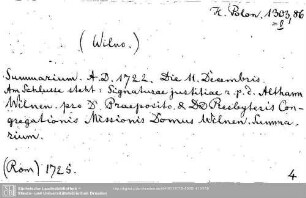 H. Polon. 1303,86
(Wilno.)
Summarium. A.D. 1722. Die 11. Decembris.
Am Schlusse steht: Signaturae justitiae r.p.d. Althann
Wilnen. pro D. Praeposito & DD Presbyteris Con-
gregationis Missionis Domus Wilnen. Summa-
rium.
(Rom) 1725.
4
Sächsische Landesbibliothek -
Staats- und Universitätsbibliothek Dresden